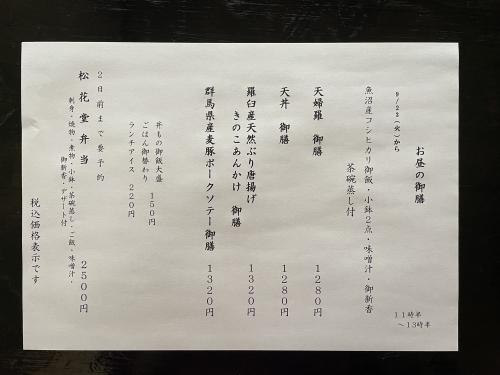 お昼の御膳
11時半
~13時半
9/23(火)から
魚沼産コシヒカリ御飯・小鉢2点・味噌汁・御新香
茶碗蒸し付
天婦羅 御膳 1280円
天丼 御膳 1280円
羅臼産天然ぶり唐揚げ
きのこあんかけ 御膳 1320円
群馬県産麦豚ポークソテー御膳 1320円
丼もの御飯大盛
ごはん御替わり 150円
ランチアイス 220円
2日前まで要予約
松花堂弁当 2500円
刺身・焼物・煮物・小鉢・茶碗蒸し・ご飯・味噌汁・
御新香・デザート付
税込価格表示です